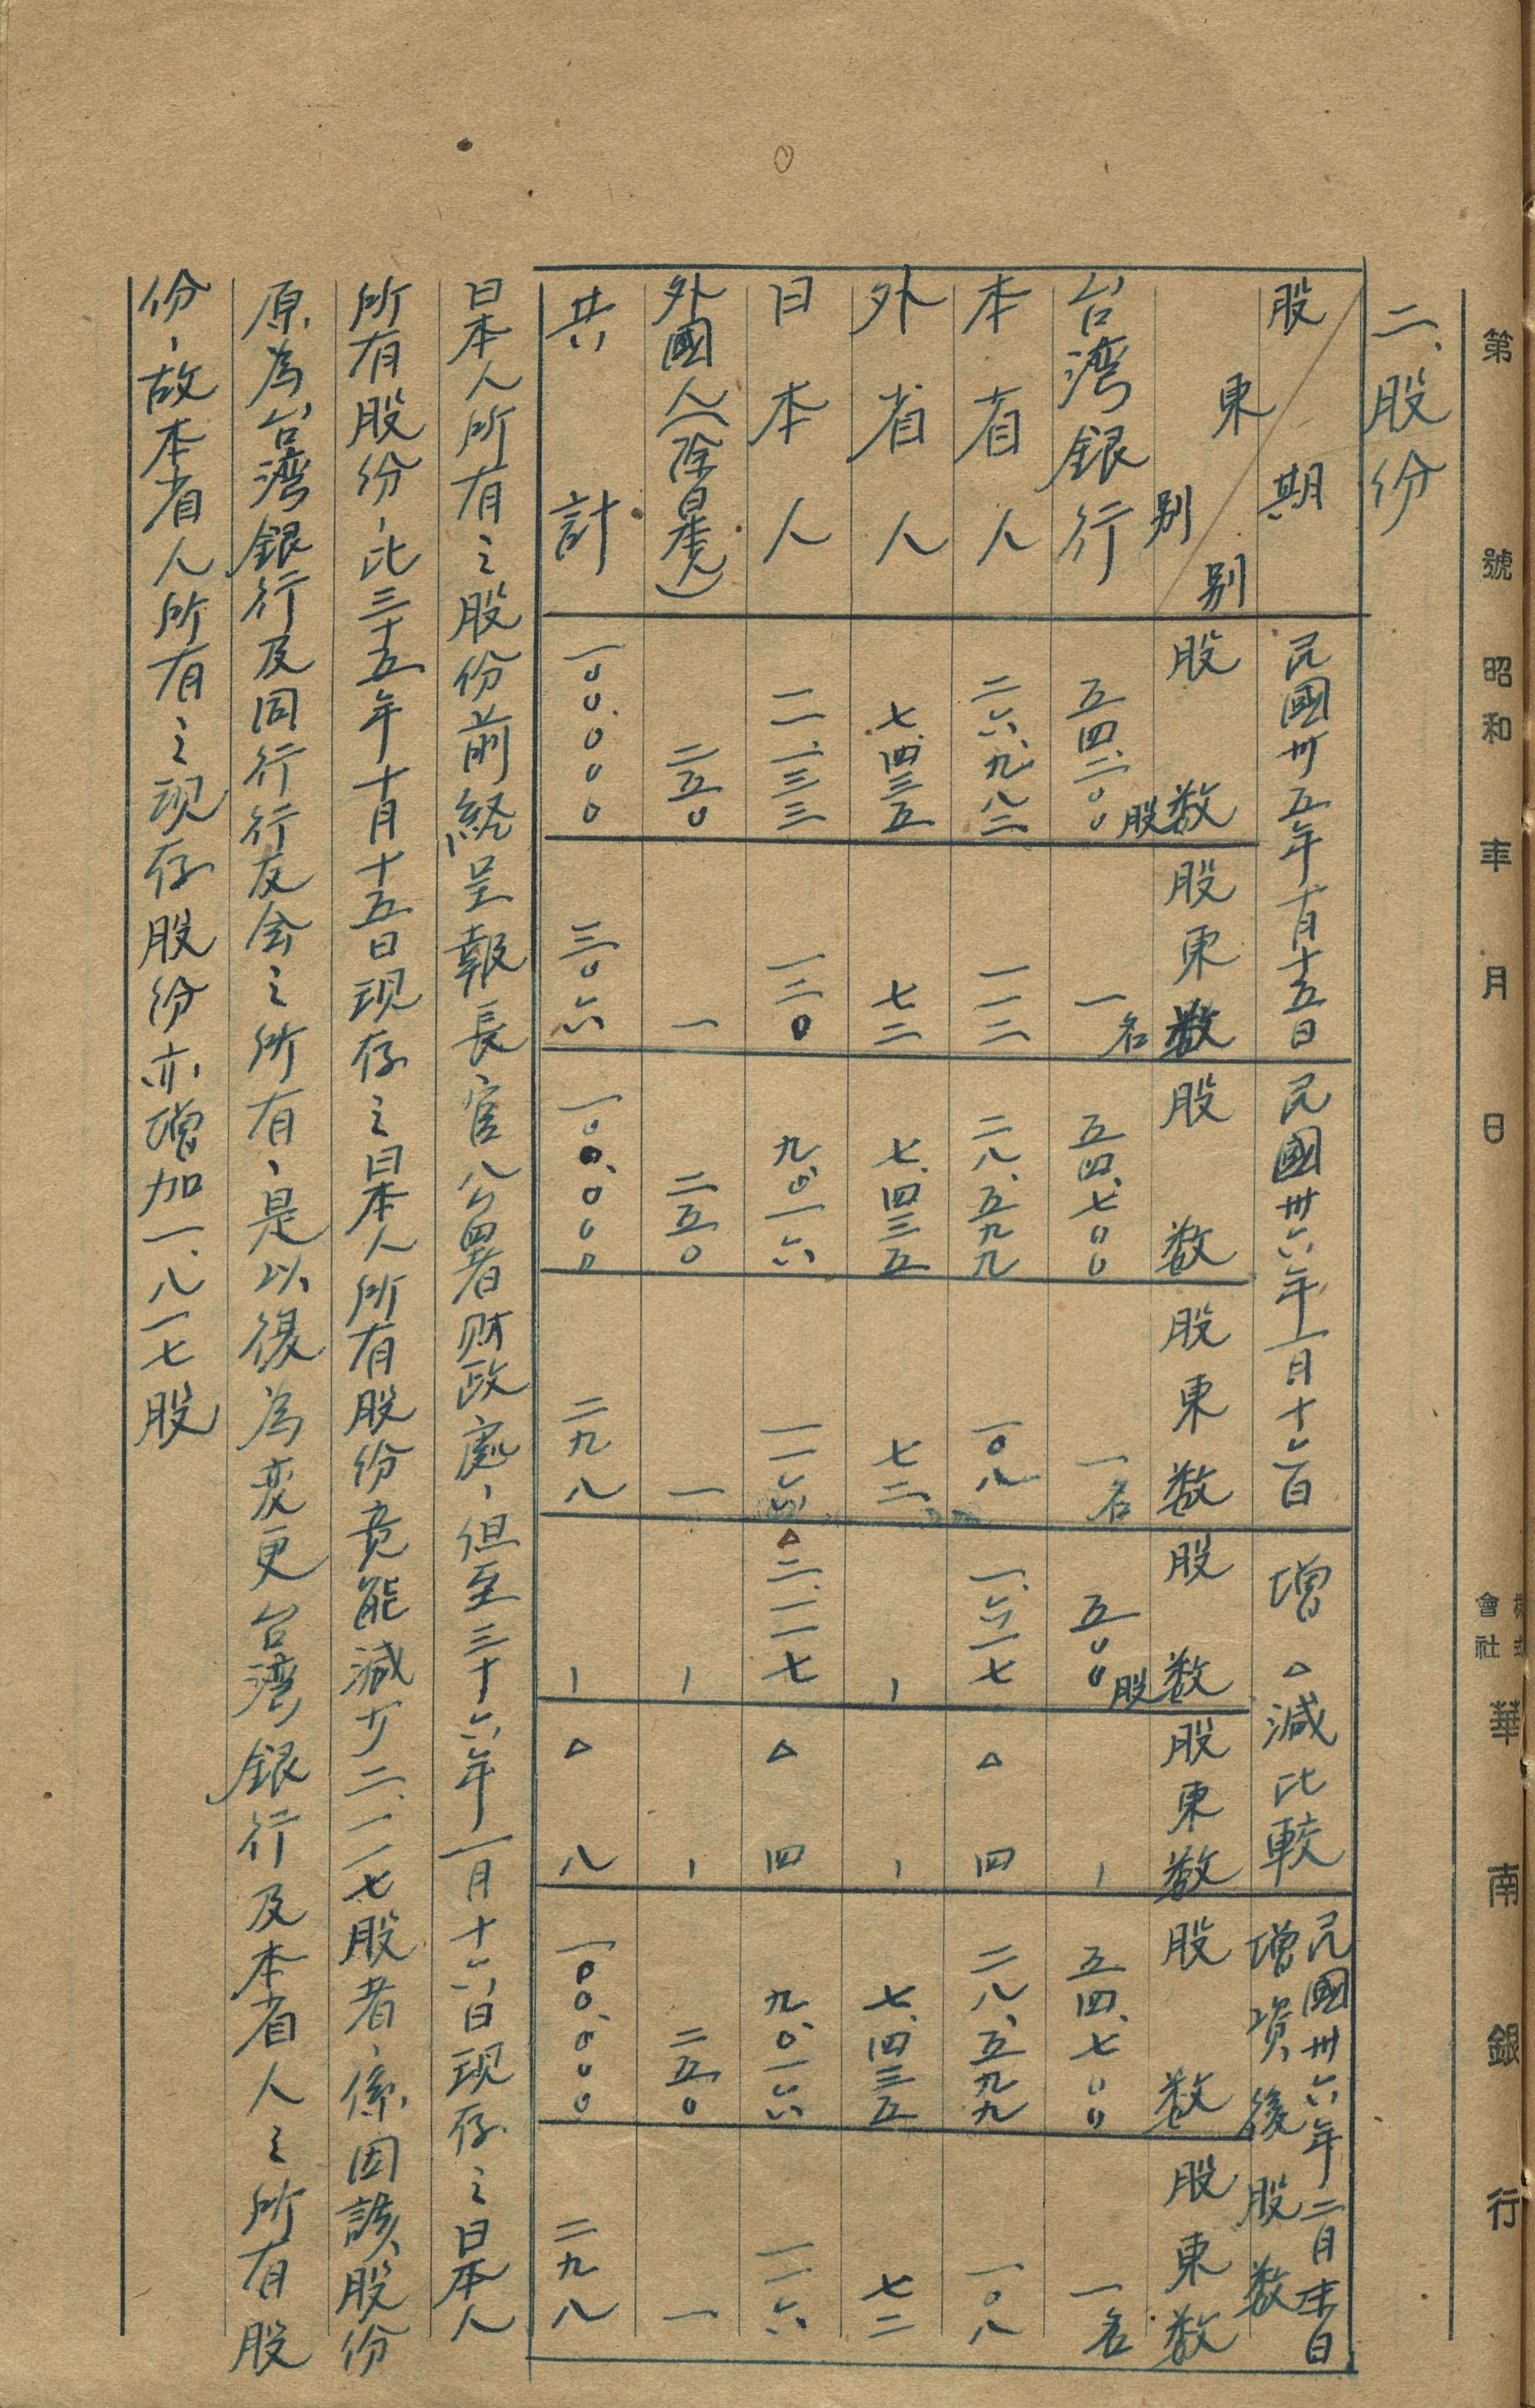 第 號 昭和 年 月 日 會社 華南銀行
二、股份
股東別 期別
民國卅五年十月十五日 民國卅六年一月十六日 增△減比較 民國卅六年二月末日增資後股数
股数 股東数 股数 股東数 股数 股東数 股数 股東数
台湾銀行 五四、二〇〇股 一名 五四、七〇〇 一名 五〇〇股 一 五四、七〇〇 一名
本省人 二六、九八二 一一二 二八、五九九 一〇八 一、六一七 △四 二八、五九九 一〇八
外省人 七、四三五 七二 七、四三五 七二 一 一 七、四三五 七二
日本人 一一、一三三 一二〇 九、〇一六 一一六 △二、一一七 △四 九、〇一六 一一六
外國人(除日本人) 二五〇 一 二五〇 一 一 一 二五〇 一
共計 一〇〇、〇〇〇 三〇六 一〇〇、〇〇〇 二九八 一 △八 一〇〇、〇〇〇 二九八
日本人所有之股份前経呈報長官公署財政處、但至三十六年一月十六日現存之日本人
所有股份、比三十五年十月十五日現存之日本人所有股份竟能減少二、一一七股者、係因該股份
原為台湾銀行及同行行友会之所有、是以後為変更台湾銀行及本省人之所有股
份、故本省人所有之現存股份亦增加一、八一七股